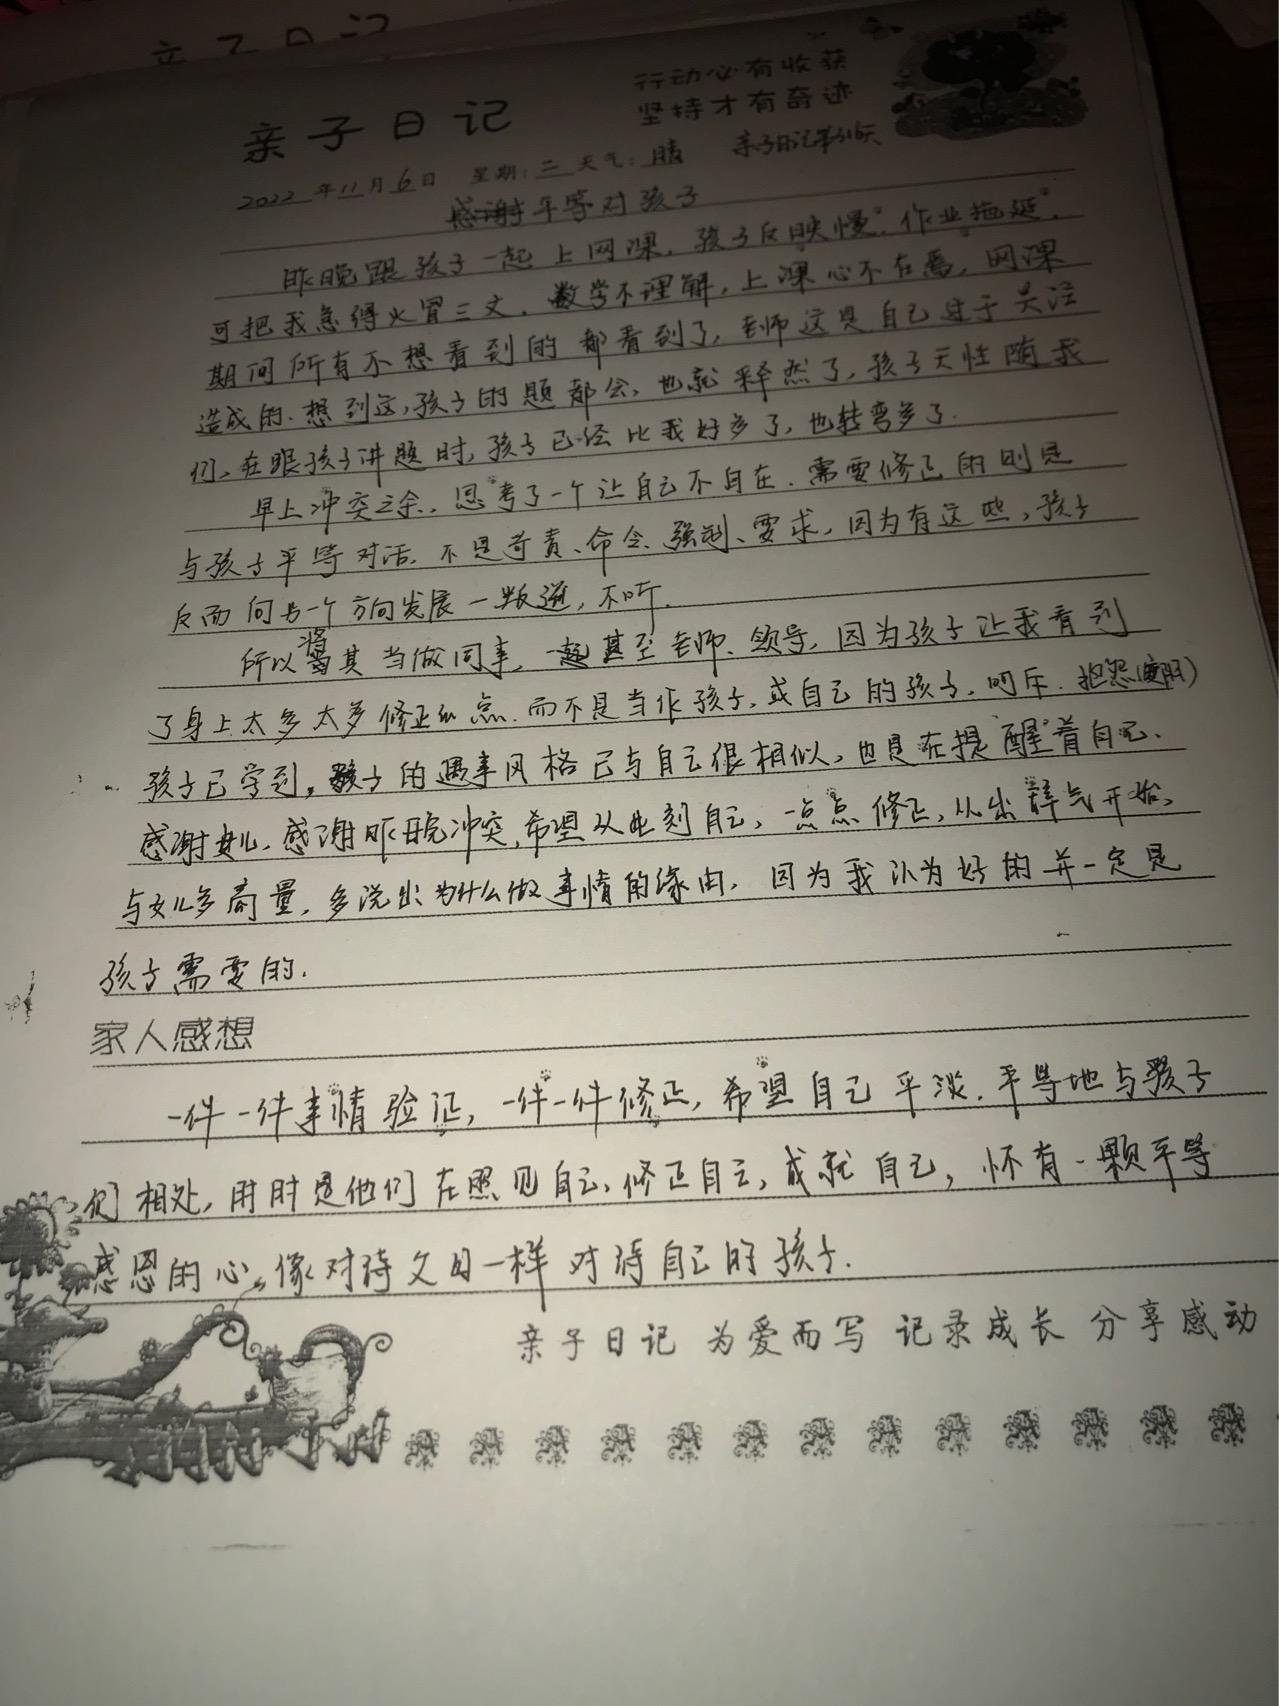 亲子日记
行动必有收获
坚持才有奇迹
亲子日记
2022年11月6日 星期:三 天气:晴 亲子日记第316天
平等对孩子
昨晚跟孩子一起上网课,孩子反映慢"作业拖延".
可把我急得火冒三丈.数学不理解,上课心不在焉,网课
期间所有不想看到的都看到了,老师这是自己过于关注
造成的.想到这,孩子的题都会,也就释然了,孩子天性随我
们、在跟孩子讲题时,孩子已经比我好多了,也转弯多了.
早上冲突之余,思考了一个让自己不自在.需要修正的则是
与孩子平等对话.不是苛责、命令、强制、要求,因为有这些,孩子
反而向另一个方向发展一叛逆,不听.
所以将其当做同事,甚至老师、领导,因为孩子让我看到
了身上太多太多修正的点.而不是当作孩子,或自己的孩子,呵斥.抱怨
孩子已学到,孩子的遇事风格已与自己很相似,也是在提"醒"着自己.
感谢女儿,感谢昨日晚冲突,希望从此刻自己,一点点修正,从出辞气开始,
与女儿多商量,多说出为什么做事情的缘由,因为我认为好的并一定是
孩子需要的.
家人感想
一件一件事情验证,一件一件修正,希望自己平淡.平等地与孩子
们相处,时时是他们在照见自己,修正自己,成就自己,怀有一颗平等
感恩的心,像对待父母一样对待自己的孩子.
亲子日记 为爱而写 记录成长 分享感动